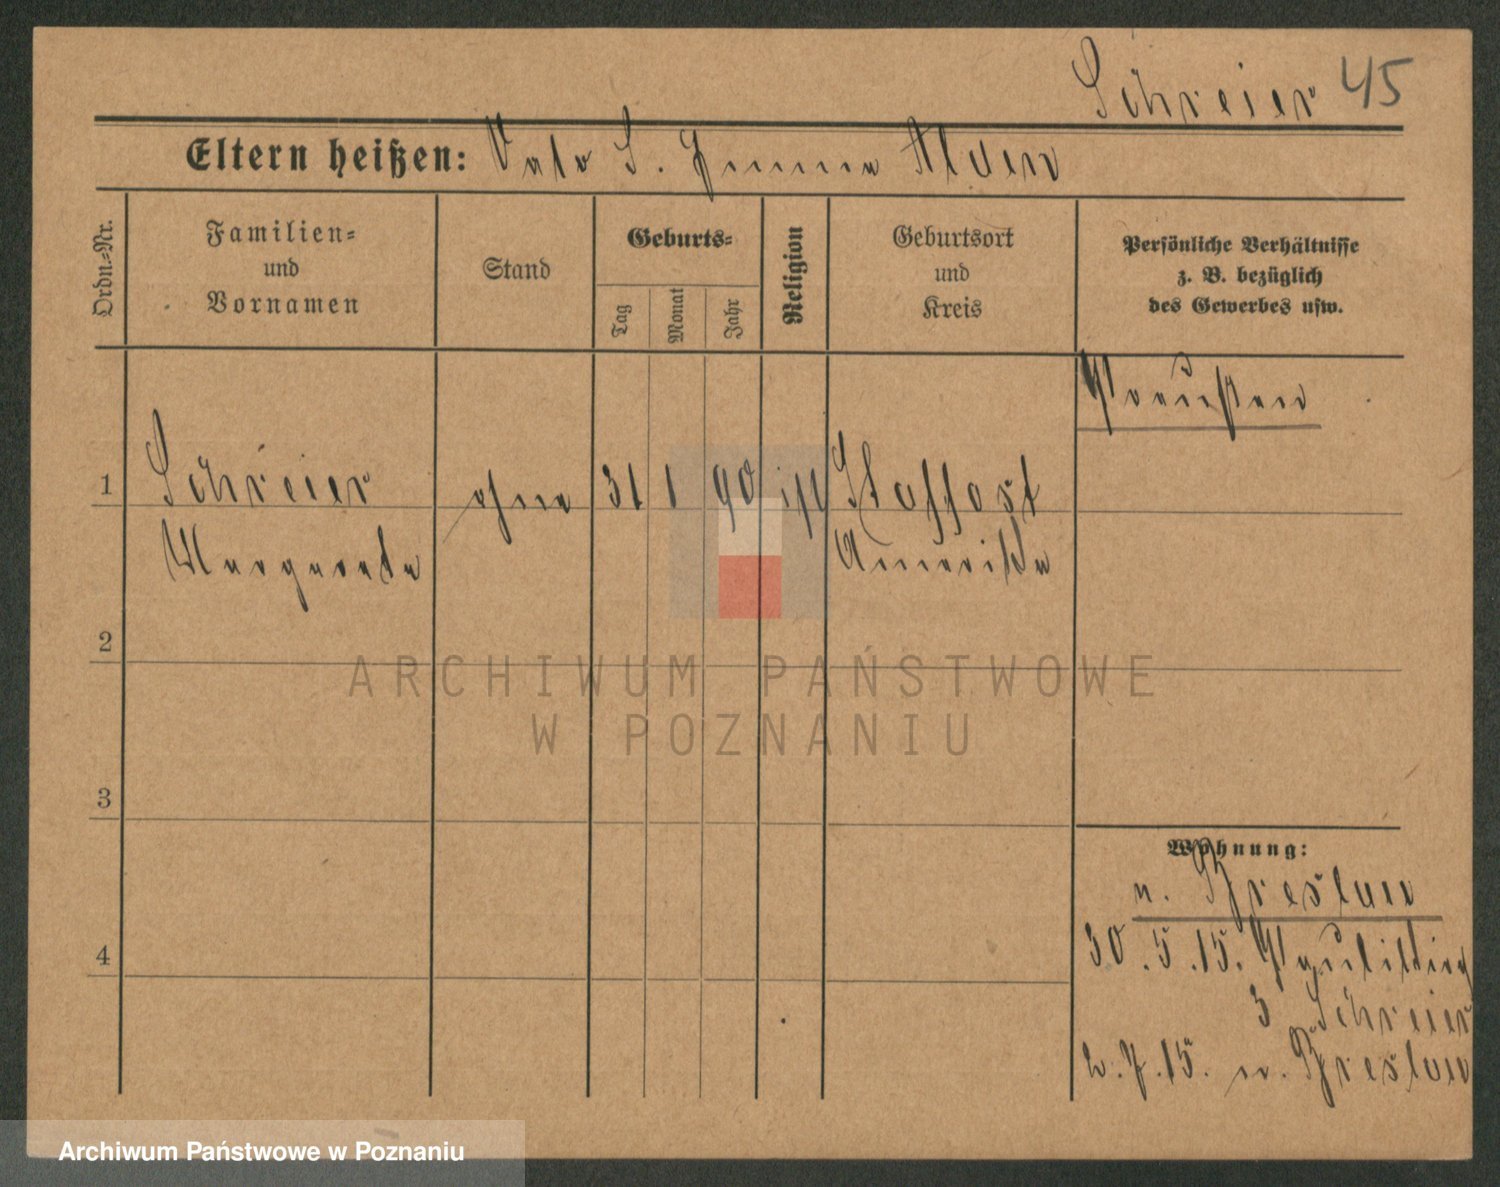 Schreier 45
Eltern heißen: S. Alver
Ordn.-Nr.
Familien-
und
Vornamen
Stand
Geburts-
Tag
Monat
Jahr
Religion
Geburtsort
und
Kreis
Persönliche Verhältnisse
z. B. bezüglich
des Gewerbes usw.
Preußen
1
Schreier
ohne
31
1
90
Margareta
Amerika
2
3
4
Wohnung:
n. Breslau
30.5.15.
3 Schreier
2.7.15. n. Breslau
ARCHIWUM PAŃSTWOWE
W POZNANIU
Archiwum Państwowe w Poznaniu